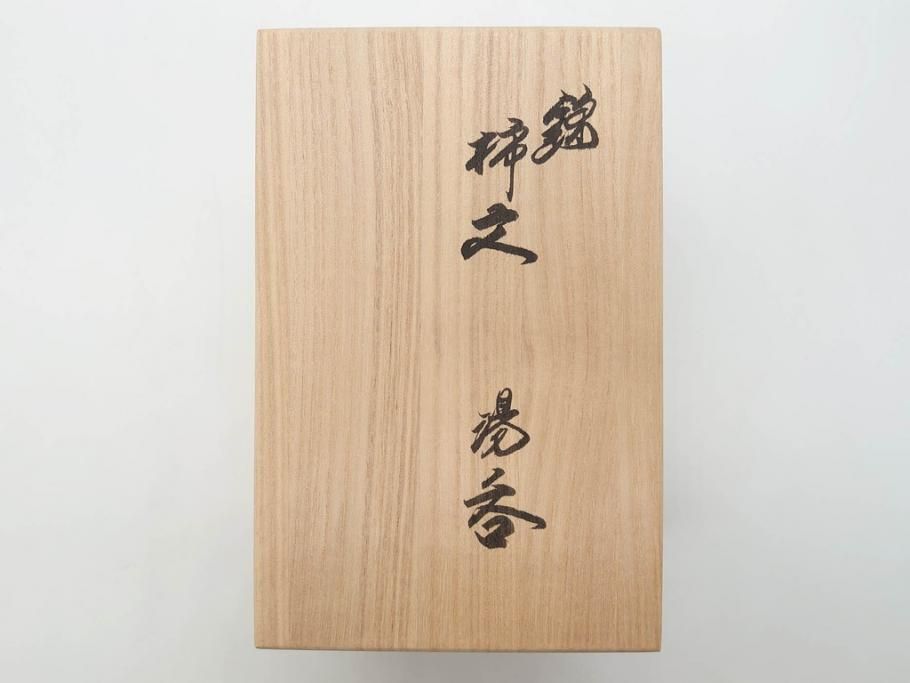 銘
柿文 湯呑